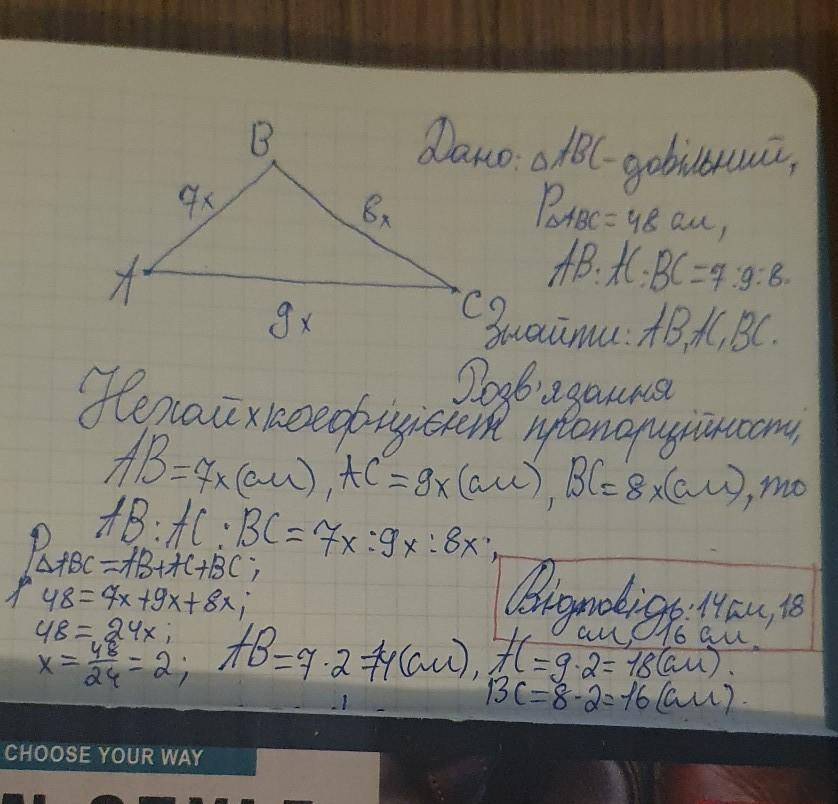 B
7x
8x
A
9x
C
Дано: △ABC - довільний,
P△ABC = 48 см,
AB : AC : BC = 7 : 9 : 8.
Знайти: AB, AC, BC.
Розв'язання
Нехай x коефіцієнт пропорційності,
AB = 7x (см), AC = 9x (см), BC = 8x (см), то
AB : AC : BC = 7x : 9x : 8x;
P△ABC = AB + AC + BC;
48 = 7x + 9x + 8x;
48 = 24x;
x = 48/24 = 2; AB = 7 · 2 = 14 (см), AC = 9 · 2 = 18 (см).
BC = 8 · 2 = 16 (см).
Відповідь: 14 см, 18
см, 16 см.
CHOOSE YOUR WAY